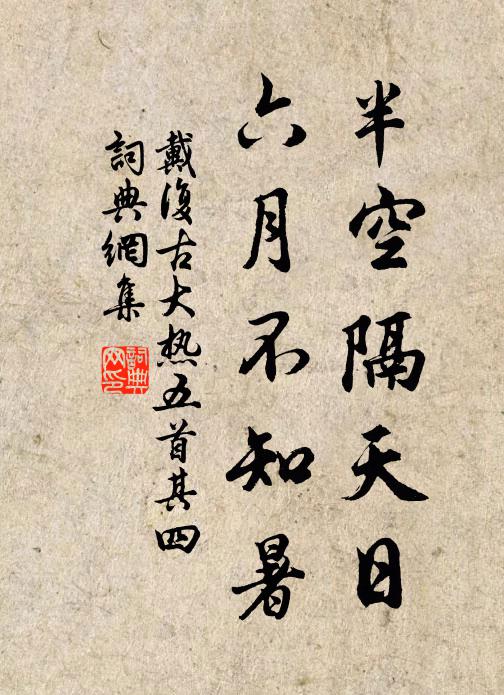 半空隔天日
六月不知暑
戴復古大热五首其四
詞典網集
詞典
网印